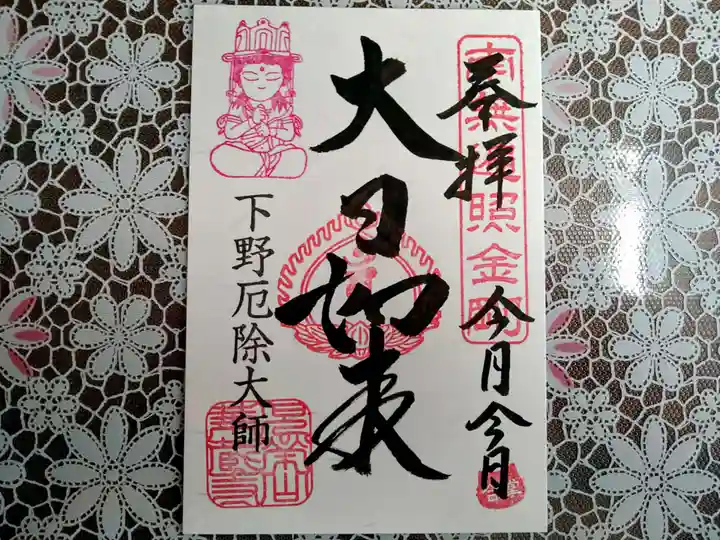 奉拝
今月今日
南無遍照金剛
大日如来
下野厄除大師